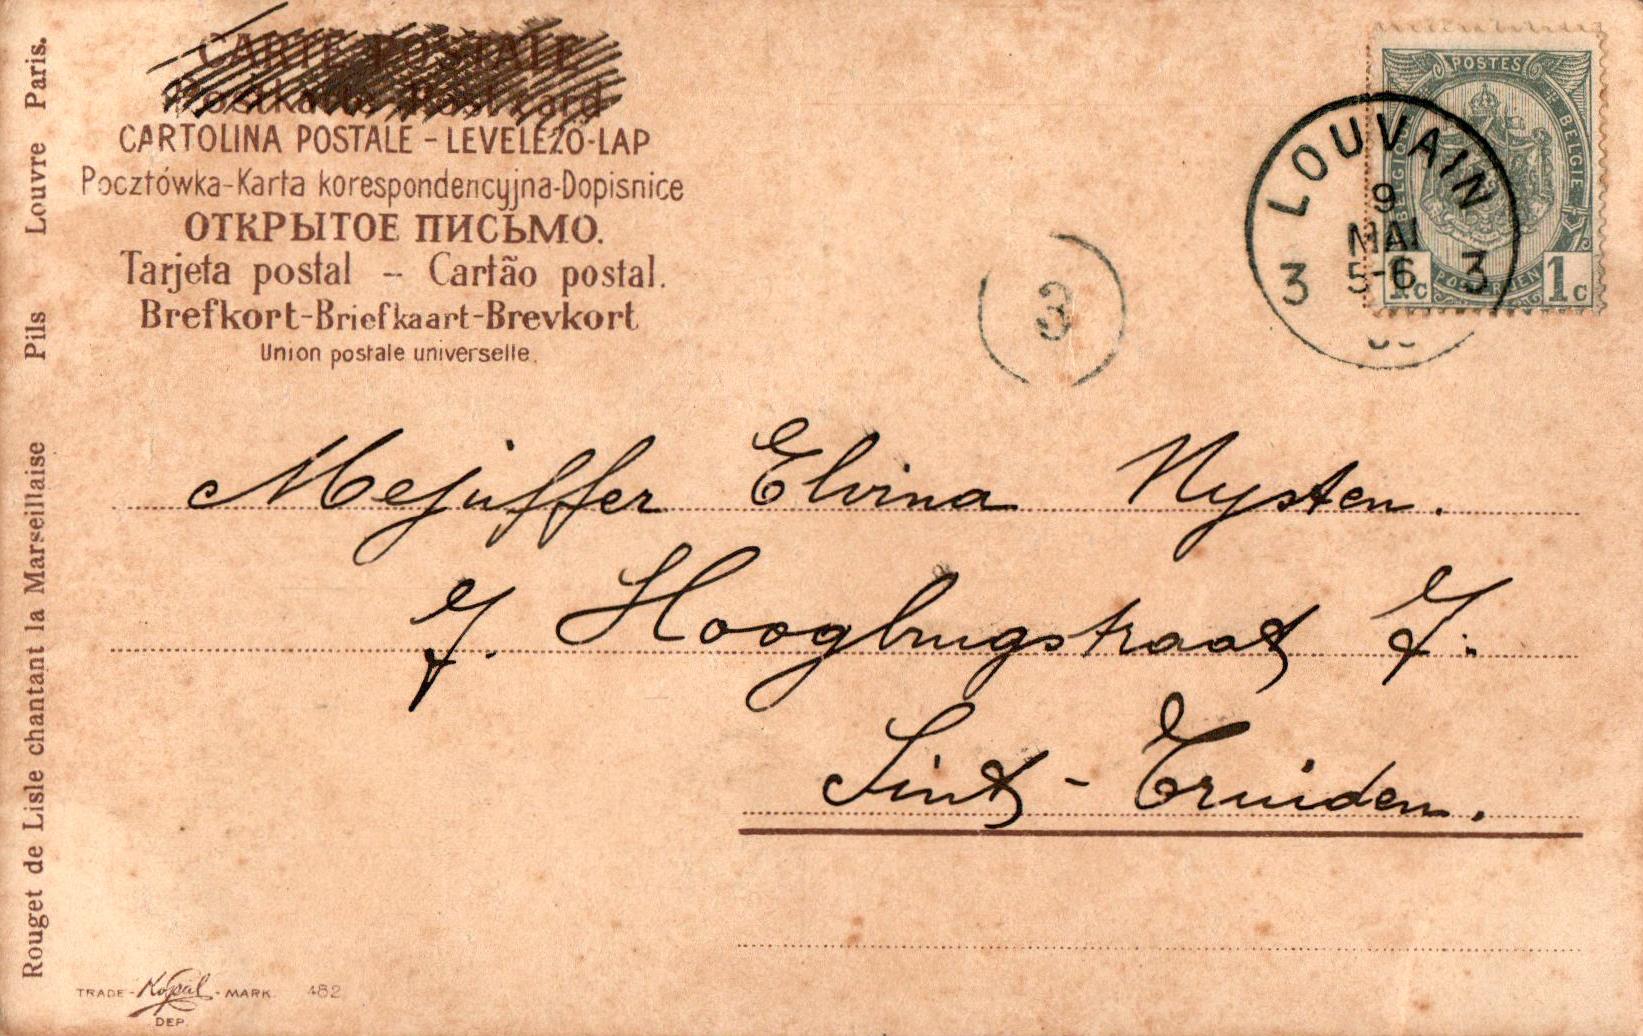 CARTE POSTALE
Postkarte Post kard
CARTOLINA POSTALE - LEVELEZÖ-LAP
Pocztówka-Karta korespondencyjna-Dopisnice
ОТКРЫТОЕ ПИСЬМО.
Tarjeta postal - Cartão postal.
Brefkort-Briefkaart-Brevkort
Union postale universelle.
POSTES
BELGIQUE
BELGIE
POSTERIJEN
1c 1c
LOUVAIN
9
MAI
3 5-6 3
3
Mejuffer Elvina Nysten.
7. Hoogbrugstraat 7.
Sint-Truiden.
Rouget de Lisle chantant la Marseillaise Pils Louvre Paris.
TRADE - Kopal - MARK. 482
DEP.